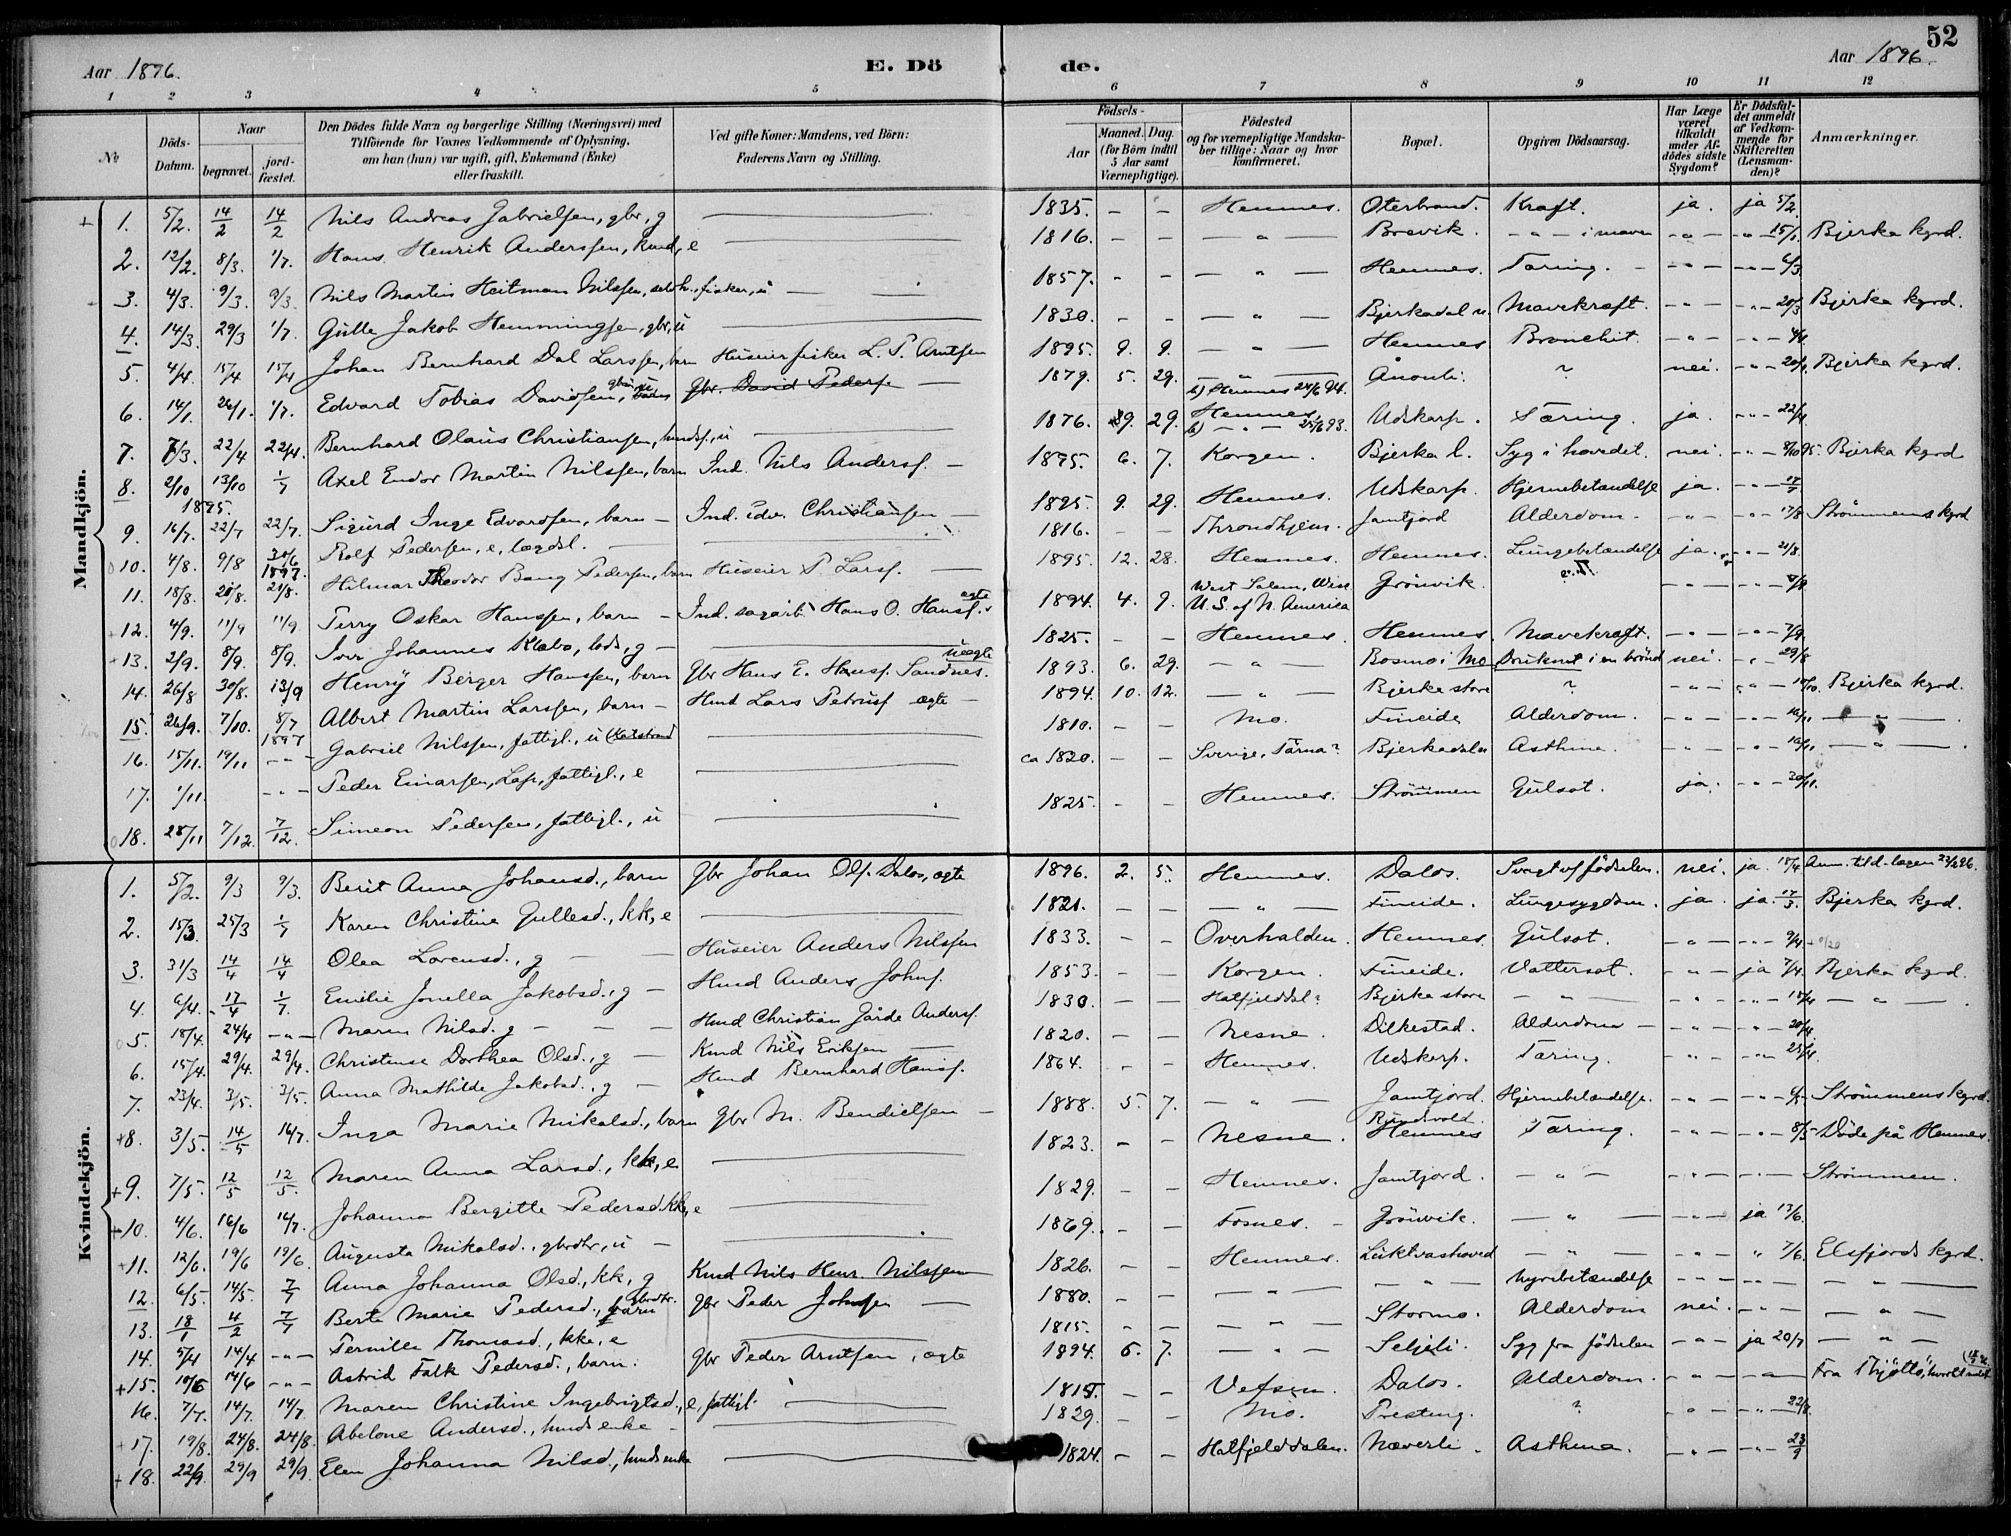 52
Aar 1896.
E. Dö
de.
Aar 1896.
1 2 3 4 5 6 7 8 9 10 11 12
№
Döds-Datum.
Naar
begravet.
jord-fæstet.
Den Dödes fulde Navn og borgerlige Stilling (Næringsvei) med
Tilföiende for Voxnes Vedkommende af Oplysning,
om han (hun) var ugift, gift, Enkemand (Enke)
eller fraskilt.
Ved gifte Koner: Mandens, ved Börn:
Faderens Navn og Stilling.
Födsels-
Aar
Maaned. Dag.
(for Börn indtil
5 Aar samt
Værnepligtige).
Födested
og for værnepligtige Mandska-
ber tillige: Naar og hvor
konfirmeret.
Bopæl.
Opgiven Dödsaarsag.
Har Læge
været
tilkaldt
under Af-
dödes sidste
Sygdom?
Er Dödsfal-
det anmeldt
af Vedkom-
mende for
Skifteretten
(Lensman-
den)?
Anmærkninger.
Mandkjön.
1. 5/2. 14/2 14/2 Nils Andreas Gabrielsen, gbr, g 1835. – – Hemnes. Oterbrand. Kræft. ja. ja 5/2.
2. 12/2. 8/3. 1/7. Hans Henrik Anderssen, kmd, e 1816. – – – " – Brevik. – " – i maven – " – – " – 15/1. Bjerka kgrd.
3. 4/3. 9/3. 9/3. Nils Martin Heitman Nilssen, selvh., fisker, u 1857. – – – " – Hemnes. Tæring. – " – – " – 6/3
4. 14/3. 29/3 1/7. Gulle Jakob Hemmingsen, gbr, u 1830. – – – " – Bjerkadal n. Mavekræft. – " – – " – 20/3 Bjerka kgrd.
5. 4/4. 15/4 15/4 Johan Bernhard Dal Larssen, barn Huseier fisker L. P. Arntsen 1895. 9. 9. – " – Hemnes Bronchit. – " – – " – 4/4
6. 14/1. 26/1. 1/7. Edvard Tobias Davidsen, gbrs. u Gbr. David Peders. 1879. 5. 29. – " – k) Hemnes 24/6 94. Ånonli. ? nei. – " – 20/1. Bjerka kgrd.
7. 7/3. 22/4 22/4. Bernhard Olaus Christiansen, hmdsf., u 1876. 9. 29. Hemnes. k) – " – 25/6 93. Utskarp. Tæring. ja. – " – 22/4
8. 2/10 1895. 13/10 1/7 Axel Endor Martin Nilssen, barn Ind. Nils Anders. – 1895. 6. 7. Korgen. Bjerka l. Syg i hovedet. nei. – " – 8/10 95. Bjerka kgrd
9. 16/7. 22/7 22/7. Sigurd Inge Edvardsen, barn – Ind. Edv. Christiansen 1895. 9. 29. Hemnes. Utskarp. Hjernebetændelse ja. – " – 17/7
10. 4/8. 9/8 30/6 1897. Rolf Pedersen, e, lægdsl. 1816. – – Throndhjem. Jamtjord Alderdom. – " – – " – 17/8 Strømmens kgrd
11. 18/8. 21/8. 21/8. Hilmar Theodor Bang Pedersen, barn Huseier P. Lars. 1895. 12. 28. Hemnes. Hemnes. Lungebetændelse ja. – " – 21/8.
12. 4/9. 11/9 11/9 Perry Oskar Hanssen, barn – Ind. sagarb. Hans O. Hanss. ægte 1894. 4. 9. West Salem, Wisc. U. S. of N. America Grönvik.
13. 2/9. 8/9. 8/9. Iver Johannes Klæbo, lods, g – 1825. – – Hemnes. Hemnes. Mavekræft. – " – – " – 7/9.
14. 26/8 30/8. 13/9 Henry Berger Hanssen, barn Gbr Hans E. Hanss. Sandnes. uægte 1893. 6. 29. – " – Bosmo i Mo Druknet i en brönd nei – " – 29/8
15. 26/9. 7/10. 8/7 1897 Albert Martin Larssen, barn – Hmd Lars Petrus. ægte – 1894. 10. 12. – " – Bjerka store ? – " – – " – 10/10. Bjerka kgrd.
16. 15/11. 19/11 – " – Gabriel Nilssen, fattigl., u 1810. – – Mo. Fineide Alderdom. – " – – " – 16/11 – " –
17. 1/11. – " – Peder Einarssen, Lap, fattigl., e ca 1820. – – Sverige, Tärna? Bjerkadalen Asthma. – " – – " – 16/11 – " –
18. 28/11 7/12. 7/12. Simeon Pedersen, fattigl., u 1825. – – Hemnes. Strömmen Gulsot. ja. – " – 30/11.
Kvindekjön.
1. 5/2. 9/3 9/3. Berit Anna Johansd., barn Gbr Johan Ols. Dalos, ægte 1896. 2. 5. Hemnes. Dalos. Svagt af fødselen. nei. ja. 18/4
2. 15/3. 25/3 1/7 Karen Christine Gullesd., kk, e 1821. – – – " – Fineide. Lungesygdom. ja. ja. 17/3. Bjerka kgrd.
3. 31/3 14/4 14/4 Olea Lorensd., g – Huseier Anders Nilssen 1833. – – Overhalden. Hemnes. Gulsot. – " – – " – 9/4
4. 6/4. 17/4 1/7. Emilie Jonella Jakobsd., g – Hmd Anders Johns. 1853. – – Korgen. Fineide. Vattersot. – " – ja 7/4. Bjerka kgrd.
5. 18/4. 24/4 – " – Maren Nilsd. g – Hmd Christian Gårde Anders. 1830. – – Hatfjelddal? Bjerka store – " – – " – – " – 18/4 – " –
6. 15/4. 29/4. 29/4. Christense Dorthea Olsd., g – Kmd Nils Eriksen 1820. – – Nesne. Dilkestad. Alderdom – – " – – " – 20/4
7. 23/4. 3/5. 3/5. Anna Mathilde Jakobsd., g – Hmd Bernhard Hans. 1864. – – Hemnes. Utskarp. Tæring. – " – – " – 25/4.
8. 3/5. 14/5 16/7. Inga Marie Mikalsd., barn Gbr M. Bendictsen – 1888. 5. 7. – " – Jamtjord. Hjernebetændelse. – " – – " – Strømmens kgrd.
9. 7/5. 12/5 12/5. Maren Anna Larsd., kk, e 1823. – – Nesne. Hemnes Tæring. – " – – " – 8/5 Døde på Hemnes.
10. 4/6. 16/6 16/7. Johanna Bergitte Pedersd. kk, e 1829. – – Hemnes. Jamtjord. – " – – " – – " – Strømmen.
11. 12/6. 19/6 19/6. Augusta Mikalsd., gbrdtr., u – 1869. – – Fosnes. – Grönvik. – " – – " – ja 13/6.
12. 6/5. 14/5. 7/7 Anna Johanna Olsd., kk, g Kmd Nils Henr. Nilssen 1826. – – Hemnes. Luktvashoved – " – – " – " 7/6. Elsfjords kgrd.
13. 18/1 4/2 7/7 Berte Marie Pedersd., gbrdtr. barn Gbr Peder Johnsen 1880. – – – " – – " – Nyrebetændelse – " – – " – – " –
14. 5/4 14/4 – " – Pernille Thomasd., kke, e 1815. – – – " – Stormo. Alderdom nei. – " – – " –
15. 10/6 14/6 – " – Astrid Falk Pedersd., barn. Gbr Peder Arntsen, ægte 1894. 6. 7. – " – Seljeli. Syg fra fødselen – " – ja 20/7 – " –
16. 7/7. 14/7. 14/7. Maren Christine Ingebrigtsd., e, fattigl. 1815. – – Vefsen. Dalos. Alderdom. – " – – " – Fra Thjøttö,
17. 19/8. 24/8. 24/8. Abelone Andersd., hmds enke – 1829. – – Mo. Presteng. ? – " – – " – 22/8.
18. 22/9. 29/9 29/9. Elen Johanna Nilsd., hmds enke 1824. – – Hatfjelddalen. Næverli. Asthma. – " – – " – 23/9